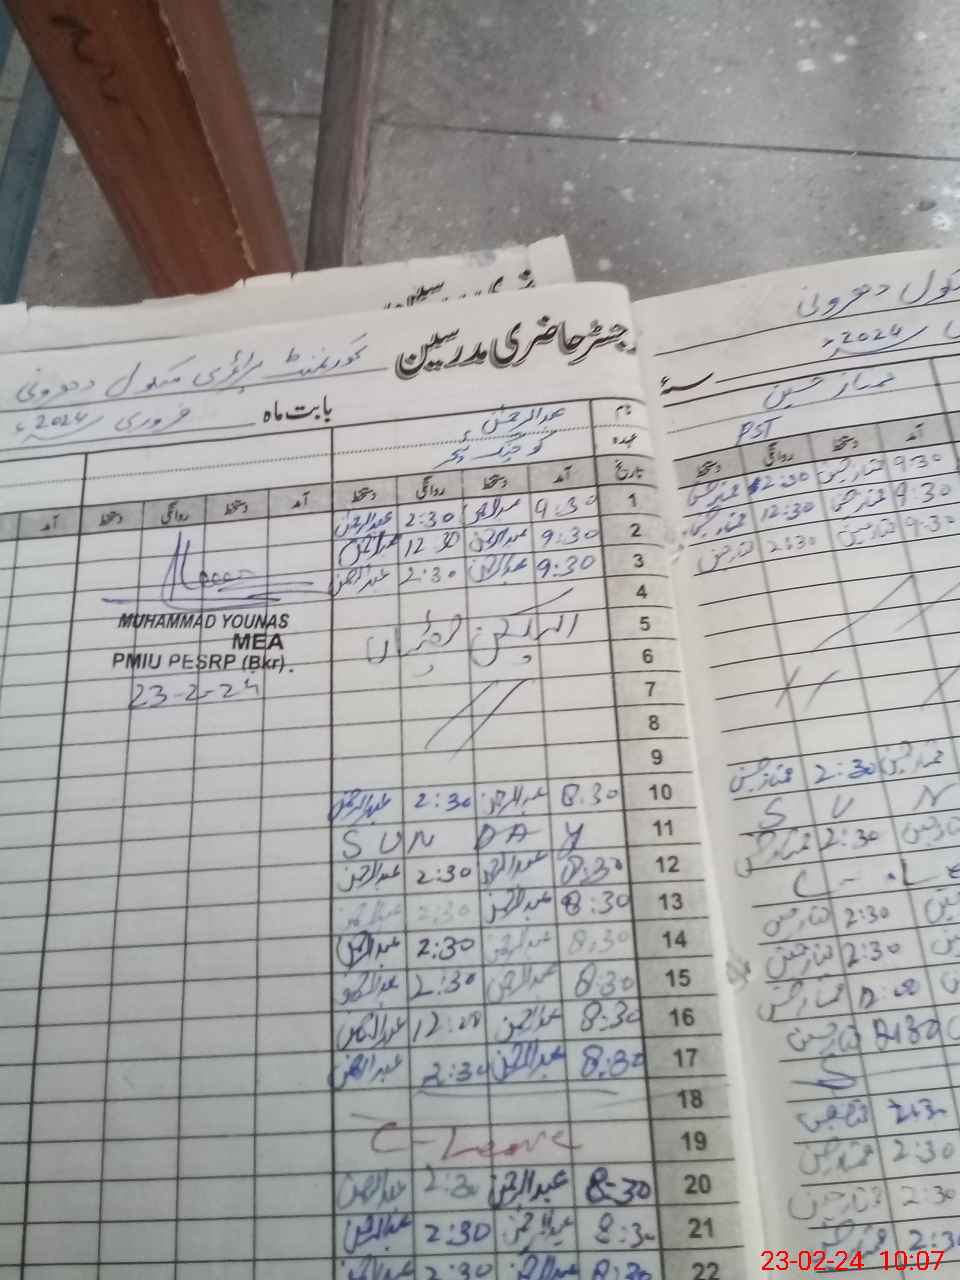 رجسٹر حاضری مدرسین گورنمنٹ پرائمری سکول
بابت ماہ فروری 2024ء
نام عبدالرحمٰن
عہدہ
تاریخ آمد دستخط روانگی دستخط آمد دستخط روانگی دستخط آمد
1 9:30 عبدالرحمٰن 2:30 عبدالرحمٰن
2 9:30 عبدالرحمٰن 12:30 عبدالرحمٰن
3 9:30 عبدالرحمٰن 2:30 عبدالرحمٰن
4
5 الیکشن
6
7
8
9
10 8:30 عبدالرحمٰن 2:30 عبدالرحمٰن
11 SUNDAY
12 8:30 عبدالرحمٰن 2:30 عبدالرحمٰن
13 8:30 عبدالرحمٰن 2:30 عبدالرحمٰن
14 8:30 عبدالرحمٰن 2:30 عبدالرحمٰن
15 8:30 عبدالرحمٰن 2:30 عبدالرحمٰن
16 8:30 عبدالرحمٰن 12:00 عبدالرحمٰن
17 8:30 عبدالرحمٰن 2:30 عبدالرحمٰن
18
19 C-Leave
20 8-30 عبدالرحمٰن 2:30 عبدالرحمٰن
21 8:30 عبدالرحمٰن 2:30 عبدالرحمٰن
22 8:30 2:30
MUHAMMAD YOUNAS
MEA
PMIU PESRP (Bkr).
23-2-24
سکول
2024ء
ممتاز حسین
PST
آمد دستخط روانگی دستخط
9:30 ممتاز حسین 2:30 ممتاز حسین
9:30 ممتاز حسین 12:30 ممتاز حسین
9:30 ممتاز حسین 2:30 ممتاز حسین
ممتاز حسین 2:30 ممتاز حسین
S U N
2:30 ممتاز حسین
C-Le
2:30 ممتاز حسین
2:30 ممتاز حسین
12:00 ممتاز حسین
2:30 ممتاز حسین
S
2:30 ممتاز حسین
2:30 ممتاز حسین
2:30 ممتاز حسین
2:30 ممتاز حسین
23-02-24 10:07